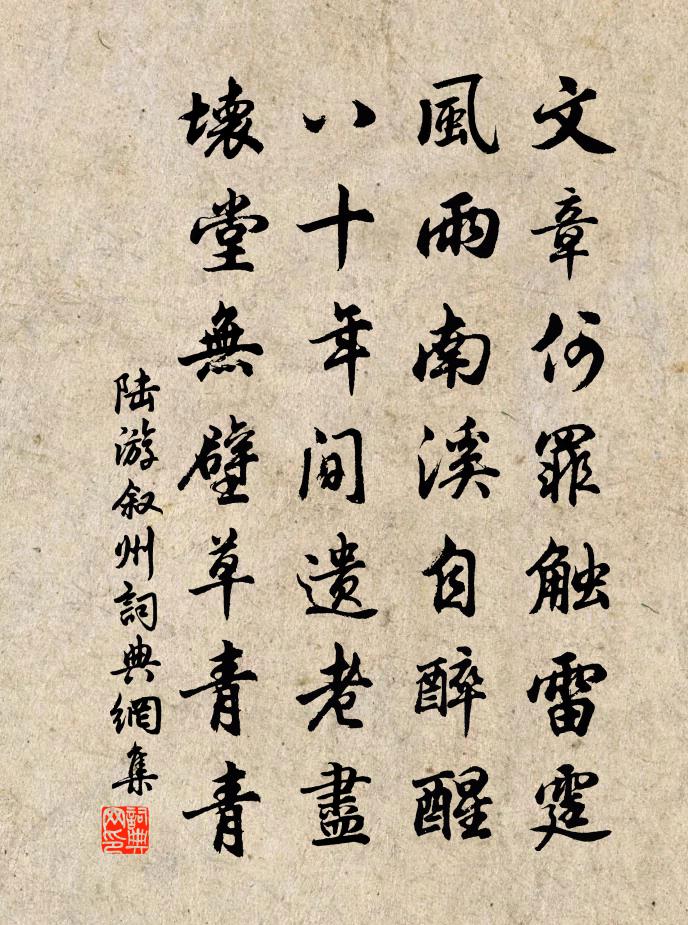 文章何罪触雷霆
風雨南溪自醉醒
八十年间遺老盡
壞堂無壁草青青
陆游叙州詞典網集
詞典网印